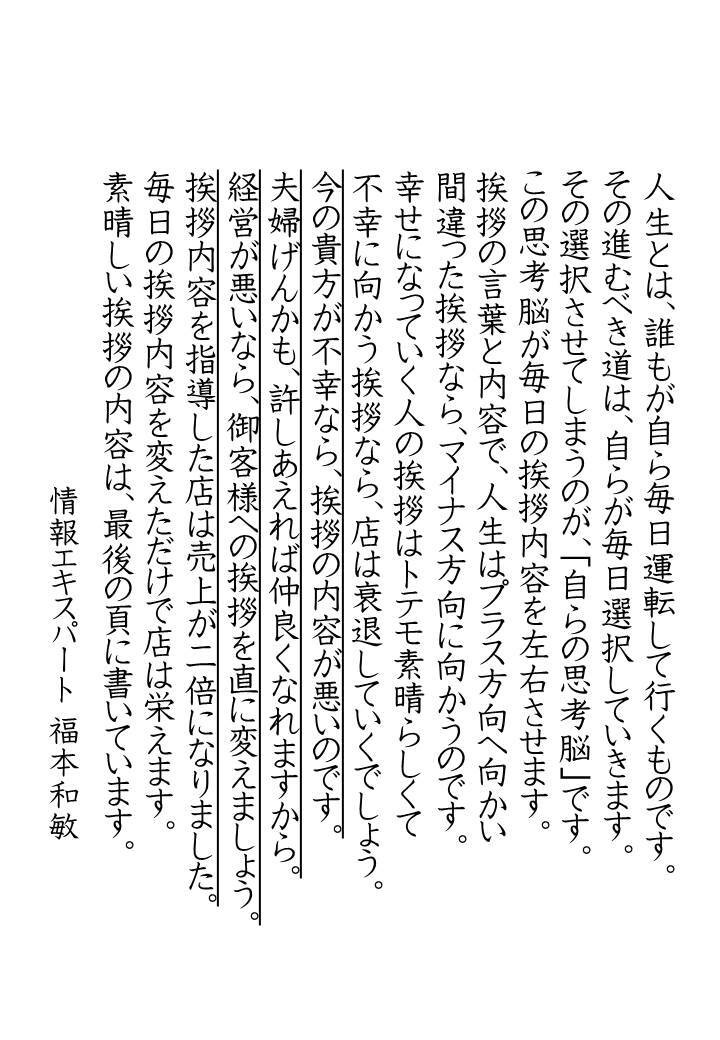 人生とは、誰もが自ら毎日運転して行くものです。
その進むべき道は、自らが毎日選択していきます。
その選択させてしまうのが、「自らの思考脳」です。
この思考脳が毎日の挨拶内容を左右させます。
挨拶の言葉と内容で、人生はプラス方向へ向かい
間違った挨拶なら、マイナス方向に向かうのです。
幸せになっていく人の挨拶はトテモ素晴らしくて
不幸に向かう挨拶なら、店は衰退していくでしょう。
今の貴方が不幸なら、挨拶の内容が悪いのです。
夫婦げんかも、許しあえれば仲良くなれますから。
経営が悪いなら、御客様への挨拶を直に変えましょう。
挨拶内容を指導した店は売上が二倍になりました。
毎日の挨拶内容を変えただけで店は栄えます。
素晴しい挨拶の内容は、最後の頁に書いています。
情報エキスパート 福本和敏